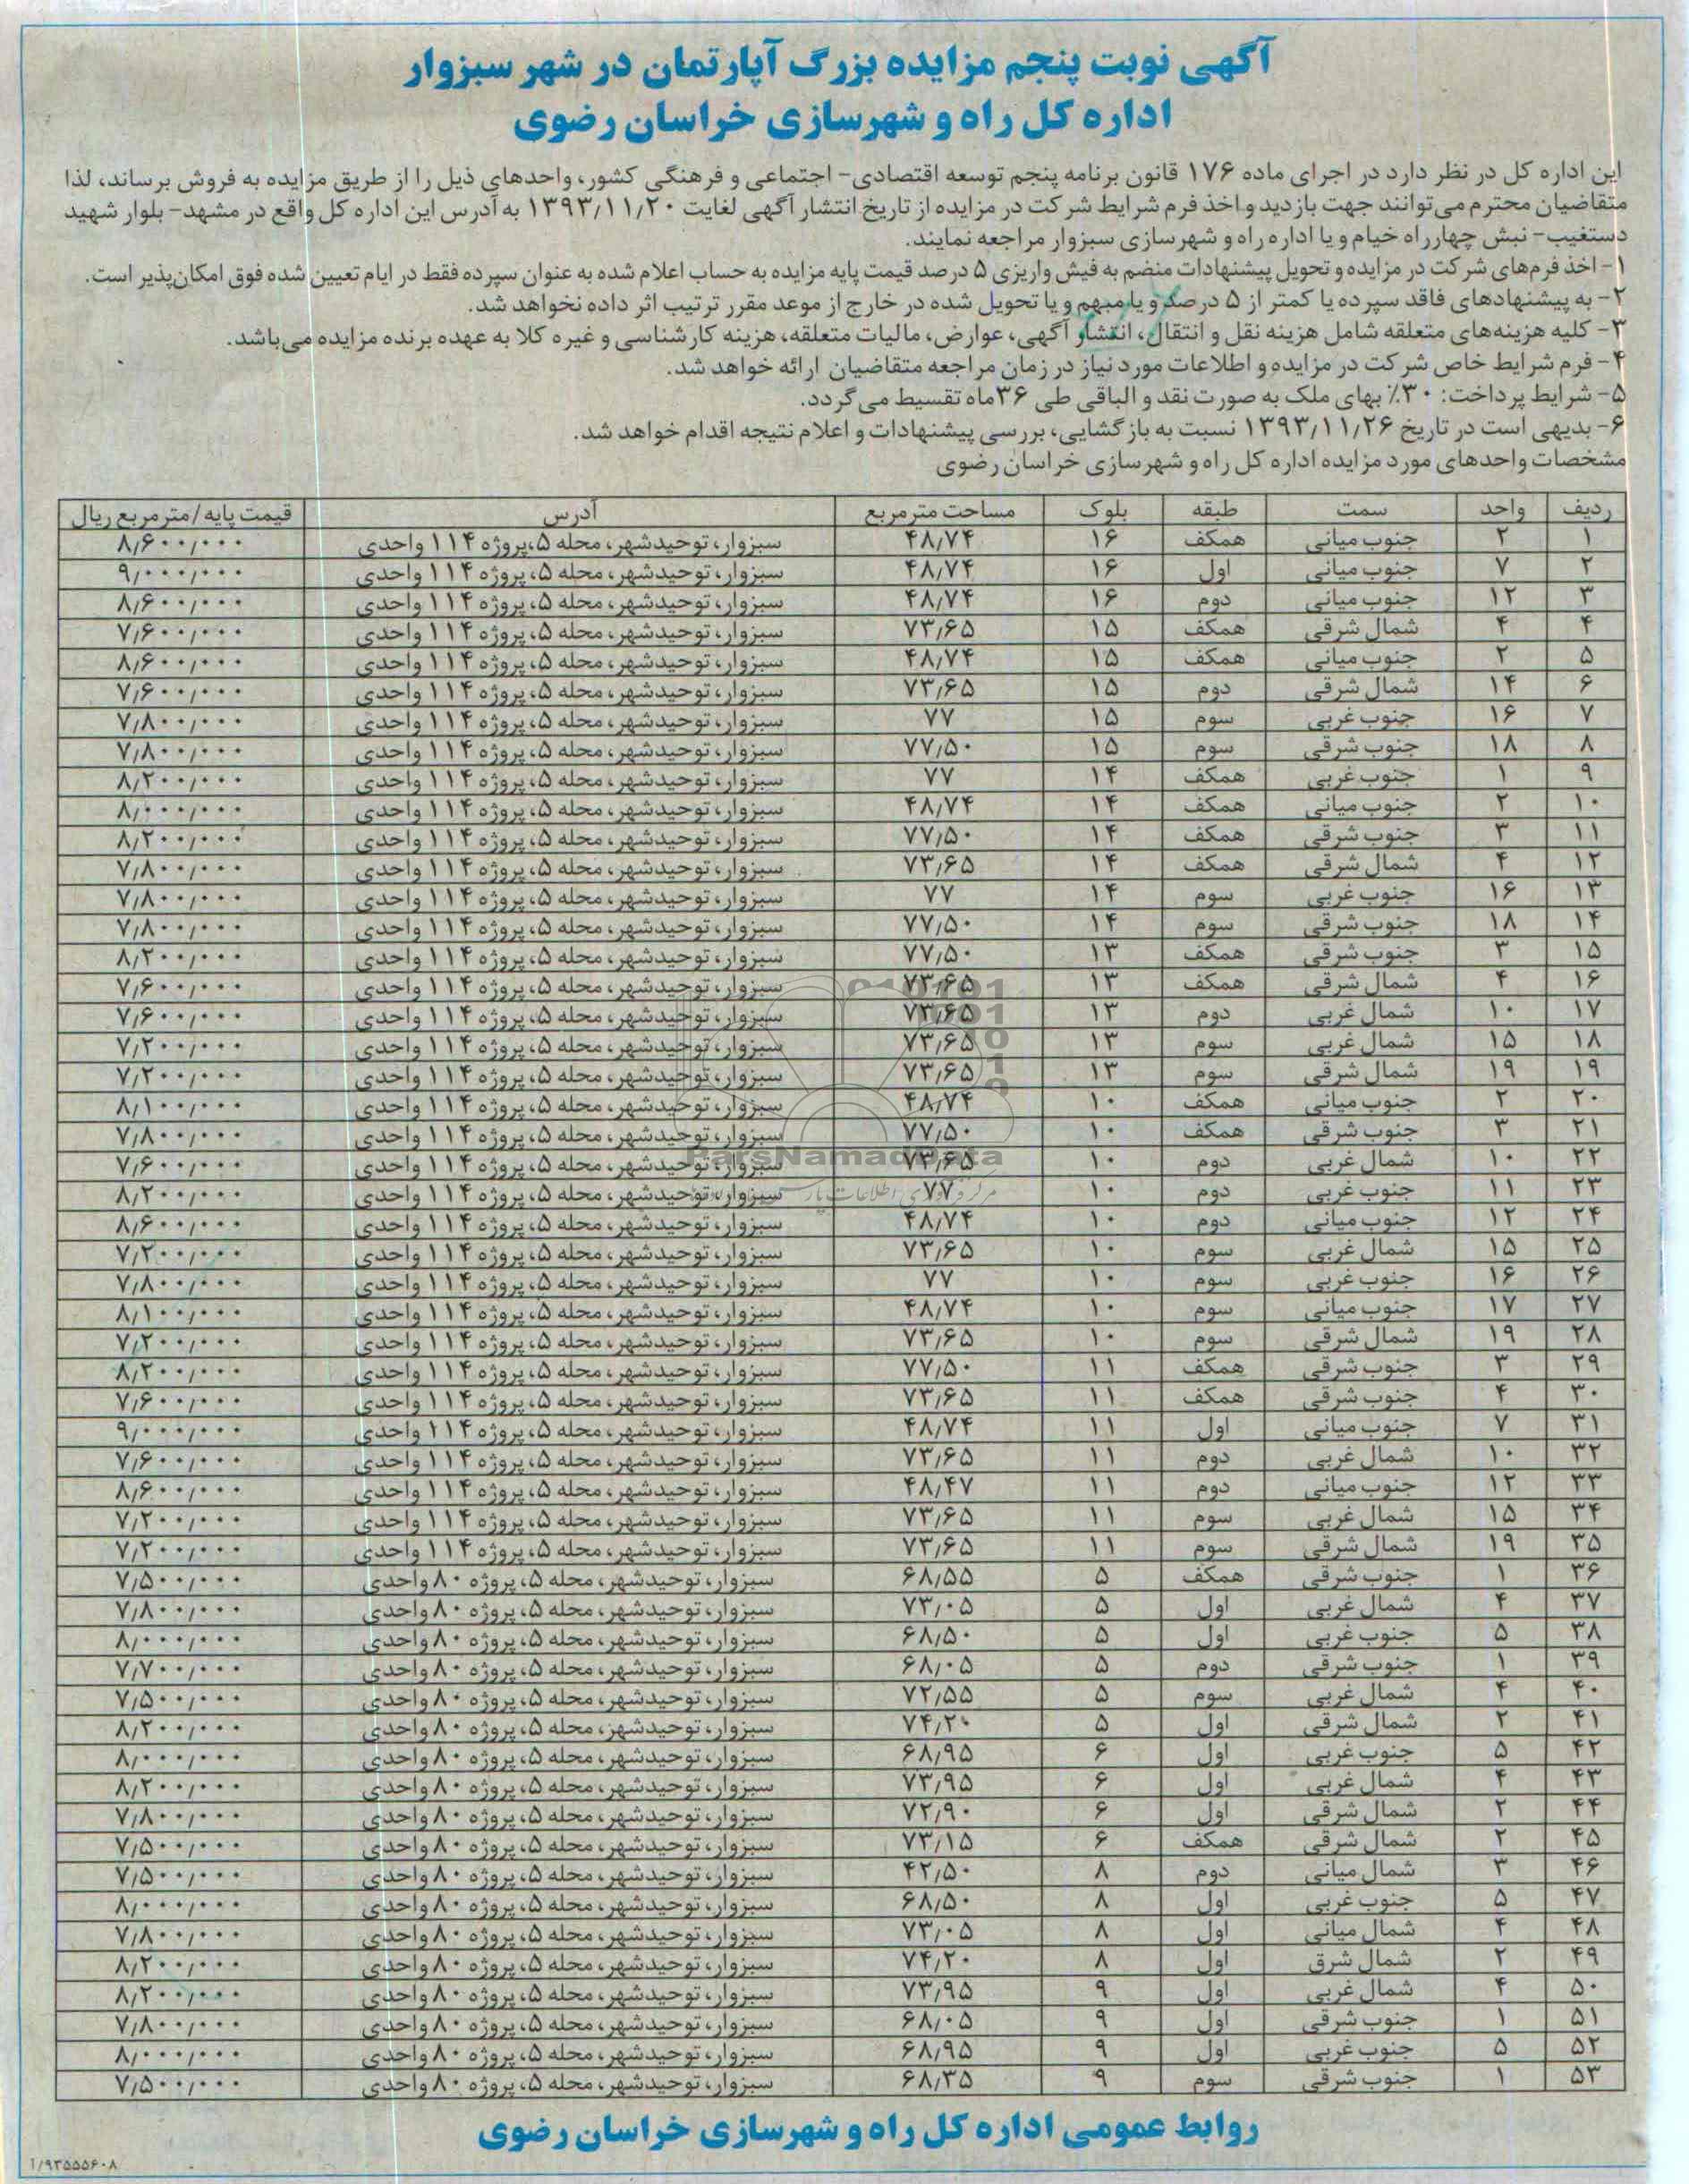 آگهی نوبت پنجم مزایده بزرگ آپارتمان در شهر سبزوار
اداره کل راه و شهرسازی خراسان رضوی
این اداره کل در نظر دارد در اجرای ماده ۱۷۶ قانون برنامه پنجم توسعه اقتصادی- اجتماعی و فرهنگی کشور، واحدهای ذیل را از طریق مزایده به فروش برساند، لذا
متقاضیان محترم می‌توانند جهت بازدید و اخذ فرم شرایط شرکت در مزایده از تاریخ انتشار آگهی لغایت ۱۳۹۳/۱۱/۲۰ به آدرس این اداره کل واقع در مشهد- بلوار شهید
دستغیب- نبش چهارراه خیام و یا اداره راه و شهرسازی سبزوار مراجعه نمایند.
۱- اخذ فرم‌های شرکت در مزایده و تحویل پیشنهادات منضم به فیش واریزی ۵ درصد قیمت پایه مزایده به حساب اعلام شده به عنوان سپرده فقط در ایام تعیین شده فوق امکان‌پذیر است.
۲- به پیشنهادهای فاقد سپرده یا کمتر از ۵ درصد و یا مبهم و یا تحویل شده در خارج از موعد مقرر ترتیب اثر داده نخواهد شد.
۳- کلیه هزینه‌های متعلقه شامل هزینه نقل و انتقال، انتشار آگهی، عوارض، مالیات متعلقه، هزینه کارشناسی و غیره کلا به عهده برنده مزایده می‌باشد.
۴- فرم شرایط خاص شرکت در مزایده و اطلاعات مورد نیاز در زمان مراجعه متقاضیان ارائه خواهد شد.
۵- شرایط پرداخت: ۳۰٪ بهای ملک به صورت نقد و الباقی طی ۳۶ماه تقسیط می‌گردد.
۶- بدیهی است در تاریخ ۱۳۹۳/۱۱/۲۶ نسبت به بازگشایی، بررسی پیشنهادات و اعلام نتیجه اقدام خواهد شد.
مشخصات واحدهای مورد مزایده اداره کل راه و شهرسازی خراسان رضوی
ردیف واحد سمت طبقه بلوک مساحت مترمربع آدرس قیمت پایه/مترمربع ریال
۱ ۲ جنوب میانی همکف ۱۶ ۴۸/۷۴ سبزوار، توحیدشهر، محله ۵، پروژه ۱۱۴ واحدی ۸/۶۰۰/۰۰۰
۲ ۷ جنوب میانی اول ۱۶ ۴۸/۷۴ سبزوار، توحیدشهر، محله ۵، پروژه ۱۱۴ واحدی ۹/۰۰۰/۰۰۰
۳ ۱۲ جنوب میانی دوم ۱۶ ۴۸/۷۴ سبزوار، توحیدشهر، محله ۵، پروژه ۱۱۴ واحدی ۸/۶۰۰/۰۰۰
۴ ۴ شمال شرقی همکف ۱۵ ۷۳/۶۵ سبزوار، توحیدشهر، محله ۵، پروژه ۱۱۴ واحدی ۷/۶۰۰/۰۰۰
۵ ۲ جنوب میانی همکف ۱۵ ۴۸/۷۴ سبزوار، توحیدشهر، محله ۵، پروژه ۱۱۴ واحدی ۸/۶۰۰/۰۰۰
۶ ۱۴ شمال شرقی دوم ۱۵ ۷۳/۶۵ سبزوار، توحیدشهر، محله ۵، پروژه ۱۱۴ واحدی ۷/۶۰۰/۰۰۰
۷ ۱۶ جنوب غربی سوم ۱۵ ۷۷ سبزوار، توحیدشهر، محله ۵، پروژه ۱۱۴ واحدی ۷/۸۰۰/۰۰۰
۸ ۱۸ جنوب شرقی سوم ۱۵ ۷۷/۵۰ سبزوار، توحیدشهر، محله ۵، پروژه ۱۱۴ واحدی ۷/۸۰۰/۰۰۰
۹ ۱ جنوب غربی همکف ۱۴ ۷۷ سبزوار، توحیدشهر، محله ۵، پروژه ۱۱۴ واحدی ۸/۲۰۰/۰۰۰
۱۰ ۲ جنوب میانی همکف ۱۴ ۴۸/۷۴ سبزوار، توحیدشهر، محله ۵، پروژه ۱۱۴ واحدی ۸/۰۰۰/۰۰۰
۱۱ ۳ جنوب شرقی همکف ۱۴ ۷۷/۵۰ سبزوار، توحیدشهر، محله ۵، پروژه ۱۱۴ واحدی ۸/۲۰۰/۰۰۰
۱۲ ۴ شمال شرقی همکف ۱۴ ۷۳/۶۵ سبزوار، توحیدشهر، محله ۵، پروژه ۱۱۴ واحدی ۷/۸۰۰/۰۰۰
۱۳ ۱۶ جنوب غربی سوم ۱۴ ۷۷ سبزوار، توحیدشهر، محله ۵، پروژه ۱۱۴ واحدی ۷/۸۰۰/۰۰۰
۱۴ ۱۸ جنوب شرقی سوم ۱۴ ۷۷/۵۰ سبزوار، توحیدشهر، محله ۵، پروژه ۱۱۴ واحدی ۷/۸۰۰/۰۰۰
۱۵ ۳ جنوب شرقی همکف ۱۳ ۷۷/۵۰ سبزوار، توحیدشهر، محله ۵، پروژه ۱۱۴ واحدی ۸/۲۰۰/۰۰۰
۱۶ ۴ شمال شرقی همکف ۱۳ ۷۳/۶۵ سبزوار، توحیدشهر، محله ۵، پروژه ۱۱۴ واحدی ۷/۶۰۰/۰۰۰
۱۷ ۱۰ شمال غربی دوم ۱۳ ۷۳/۶۵ سبزوار، توحیدشهر، محله ۵، پروژه ۱۱۴ واحدی ۷/۶۰۰/۰۰۰
۱۸ ۱۵ شمال غربی سوم ۱۳ ۷۳/۶۵ سبزوار، توحیدشهر، محله ۵، پروژه ۱۱۴ واحدی ۷/۲۰۰/۰۰۰
۱۹ ۱۹ شمال شرقی سوم ۱۳ ۷۳/۶۵ سبزوار، توحیدشهر، محله ۵، پروژه ۱۱۴ واحدی ۷/۲۰۰/۰۰۰
۲۰ ۲ جنوب میانی همکف ۱۰ ۴۸/۷۴ سبزوار، توحیدشهر، محله ۵، پروژه ۱۱۴ واحدی ۸/۱۰۰/۰۰۰
۲۱ ۳ جنوب شرقی همکف ۱۰ ۷۷/۵۰ سبزوار، توحیدشهر، محله ۵، پروژه ۱۱۴ واحدی ۷/۸۰۰/۰۰۰
۲۲ ۱۰ شمال غربی دوم ۱۰ ۷۳/۶۵ سبزوار، توحیدشهر، محله ۵، پروژه ۱۱۴ واحدی ۷/۶۰۰/۰۰۰
ParsNamadData
۲۳ ۱۱ جنوب غربی دوم ۱۰ ۷۷ سبزوار، توحیدشهر، محله ۵، پروژه ۱۱۴ واحدی ۸/۲۰۰/۰۰۰
۲۴ ۱۲ جنوب میانی دوم ۱۰ ۴۸/۷۴ سبزوار، توحیدشهر، محله ۵، پروژه ۱۱۴ واحدی ۸/۶۰۰/۰۰۰
۲۵ ۱۵ شمال غربی سوم ۱۰ ۷۳/۶۵ سبزوار، توحیدشهر، محله ۵، پروژه ۱۱۴ واحدی ۷/۲۰۰/۰۰۰
۲۶ ۱۶ جنوب غربی سوم ۱۰ ۷۷ سبزوار، توحیدشهر، محله ۵، پروژه ۱۱۴ واحدی ۷/۸۰۰/۰۰۰
۲۷ ۱۷ جنوب میانی سوم ۱۰ ۴۸/۷۴ سبزوار، توحیدشهر، محله ۵، پروژه ۱۱۴ واحدی ۸/۱۰۰/۰۰۰
۲۸ ۱۹ شمال شرقی سوم ۱۰ ۷۳/۶۵ سبزوار، توحیدشهر، محله ۵، پروژه ۱۱۴ واحدی ۷/۲۰۰/۰۰۰
۲۹ ۳ جنوب شرقی همکف ۱۱ ۷۷/۵۰ سبزوار، توحیدشهر، محله ۵، پروژه ۱۱۴ واحدی ۸/۲۰۰/۰۰۰
۳۰ ۴ جنوب شرقی همکف ۱۱ ۷۳/۶۵ سبزوار، توحیدشهر، محله ۵، پروژه ۱۱۴ واحدی ۷/۶۰۰/۰۰۰
۳۱ ۷ جنوب میانی اول ۱۱ ۴۸/۷۴ سبزوار، توحیدشهر، محله ۵، پروژه ۱۱۴ واحدی ۹/۰۰۰/۰۰۰
۳۲ ۱۰ شمال غربی دوم ۱۱ ۷۳/۶۵ سبزوار، توحیدشهر، محله ۵، پروژه ۱۱۴ واحدی ۷/۶۰۰/۰۰۰
۳۳ ۱۲ جنوب میانی دوم ۱۱ ۴۸/۴۷ سبزوار، توحیدشهر، محله ۵، پروژه ۱۱۴ واحدی ۸/۶۰۰/۰۰۰
۳۴ ۱۵ شمال غربی سوم ۱۱ ۷۳/۶۵ سبزوار، توحیدشهر، محله ۵، پروژه ۱۱۴ واحدی ۷/۲۰۰/۰۰۰
۳۵ ۱۹ شمال شرقی سوم ۱۱ ۷۳/۶۵ سبزوار، توحیدشهر، محله ۵، پروژه ۱۱۴ واحدی ۷/۲۰۰/۰۰۰
۳۶ ۱ جنوب شرقی همکف ۵ ۶۸/۵۵ سبزوار، توحیدشهر، محله ۵، پروژه ۸۰ واحدی ۷/۵۰۰/۰۰۰
۳۷ ۴ شمال غربی اول ۵ ۷۳/۰۵ سبزوار، توحیدشهر، محله ۵، پروژه ۸۰ واحدی ۷/۸۰۰/۰۰۰
۳۸ ۵ جنوب غربی اول ۵ ۶۸/۵۰ سبزوار، توحیدشهر، محله ۵، پروژه ۸۰ واحدی ۸/۰۰۰/۰۰۰
۳۹ ۱ جنوب شرقی دوم ۵ ۶۸/۰۵ سبزوار، توحیدشهر، محله ۵، پروژه ۸۰ واحدی ۷/۷۰۰/۰۰۰
۴۰ ۴ شمال غربی سوم ۵ ۷۲/۵۵ سبزوار، توحیدشهر، محله ۵، پروژه ۸۰ واحدی ۷/۵۰۰/۰۰۰
۴۱ ۲ شمال شرقی اول ۵ ۷۴/۲۰ سبزوار، توحیدشهر، محله ۵، پروژه ۸۰ واحدی ۸/۲۰۰/۰۰۰
۴۲ ۵ جنوب غربی اول ۶ ۶۸/۹۵ سبزوار، توحیدشهر، محله ۵، پروژه ۸۰ واحدی ۸/۰۰۰/۰۰۰
۴۳ ۴ شمال غربی اول ۶ ۷۳/۹۵ سبزوار، توحیدشهر، محله ۵، پروژه ۸۰ واحدی ۸/۲۰۰/۰۰۰
۴۴ ۲ شمال شرقی اول ۶ ۷۲/۹۰ سبزوار، توحیدشهر، محله ۵، پروژه ۸۰ واحدی ۷/۸۰۰/۰۰۰
۴۵ ۲ شمال شرقی همکف ۶ ۷۳/۱۵ سبزوار، توحیدشهر، محله ۵، پروژه ۸۰ واحدی ۷/۵۰۰/۰۰۰
۴۶ ۳ شمال میانی دوم ۸ ۴۲/۵۰ سبزوار، توحیدشهر، محله ۵، پروژه ۸۰ واحدی ۷/۵۰۰/۰۰۰
۴۷ ۵ جنوب غربی اول ۸ ۶۸/۵۰ سبزوار، توحیدشهر، محله ۵، پروژه ۸۰ واحدی ۸/۰۰۰/۰۰۰
۴۸ ۴ شمال میانی اول ۸ ۷۳/۰۵ سبزوار، توحیدشهر، محله ۵، پروژه ۸۰ واحدی ۷/۸۰۰/۰۰۰
۴۹ ۲ شمال شرق اول ۸ ۷۴/۲۰ سبزوار، توحیدشهر، محله ۵، پروژه ۸۰ واحدی ۸/۲۰۰/۰۰۰
۵۰ ۴ شمال غربی اول ۹ ۷۳/۹۵ سبزوار، توحیدشهر، محله ۵، پروژه ۸۰ واحدی ۸/۲۰۰/۰۰۰
۵۱ ۱ جنوب شرقی اول ۹ ۶۸/۰۵ سبزوار، توحیدشهر، محله ۵، پروژه ۸۰ واحدی ۷/۸۰۰/۰۰۰
۵۲ ۵ جنوب غربی اول ۹ ۶۸/۹۵ سبزوار، توحیدشهر، محله ۵، پروژه ۸۰ واحدی ۸/۰۰۰/۰۰۰
۵۳ ۱ جنوب شرقی سوم ۹ ۶۸/۳۵ سبزوار، توحیدشهر، محله ۵، پروژه ۸۰ واحدی ۷/۵۰۰/۰۰۰
روابط عمومی اداره کل راه و شهرسازی خراسان رضوی
۱/۹۳۵۵۵۶۰۸